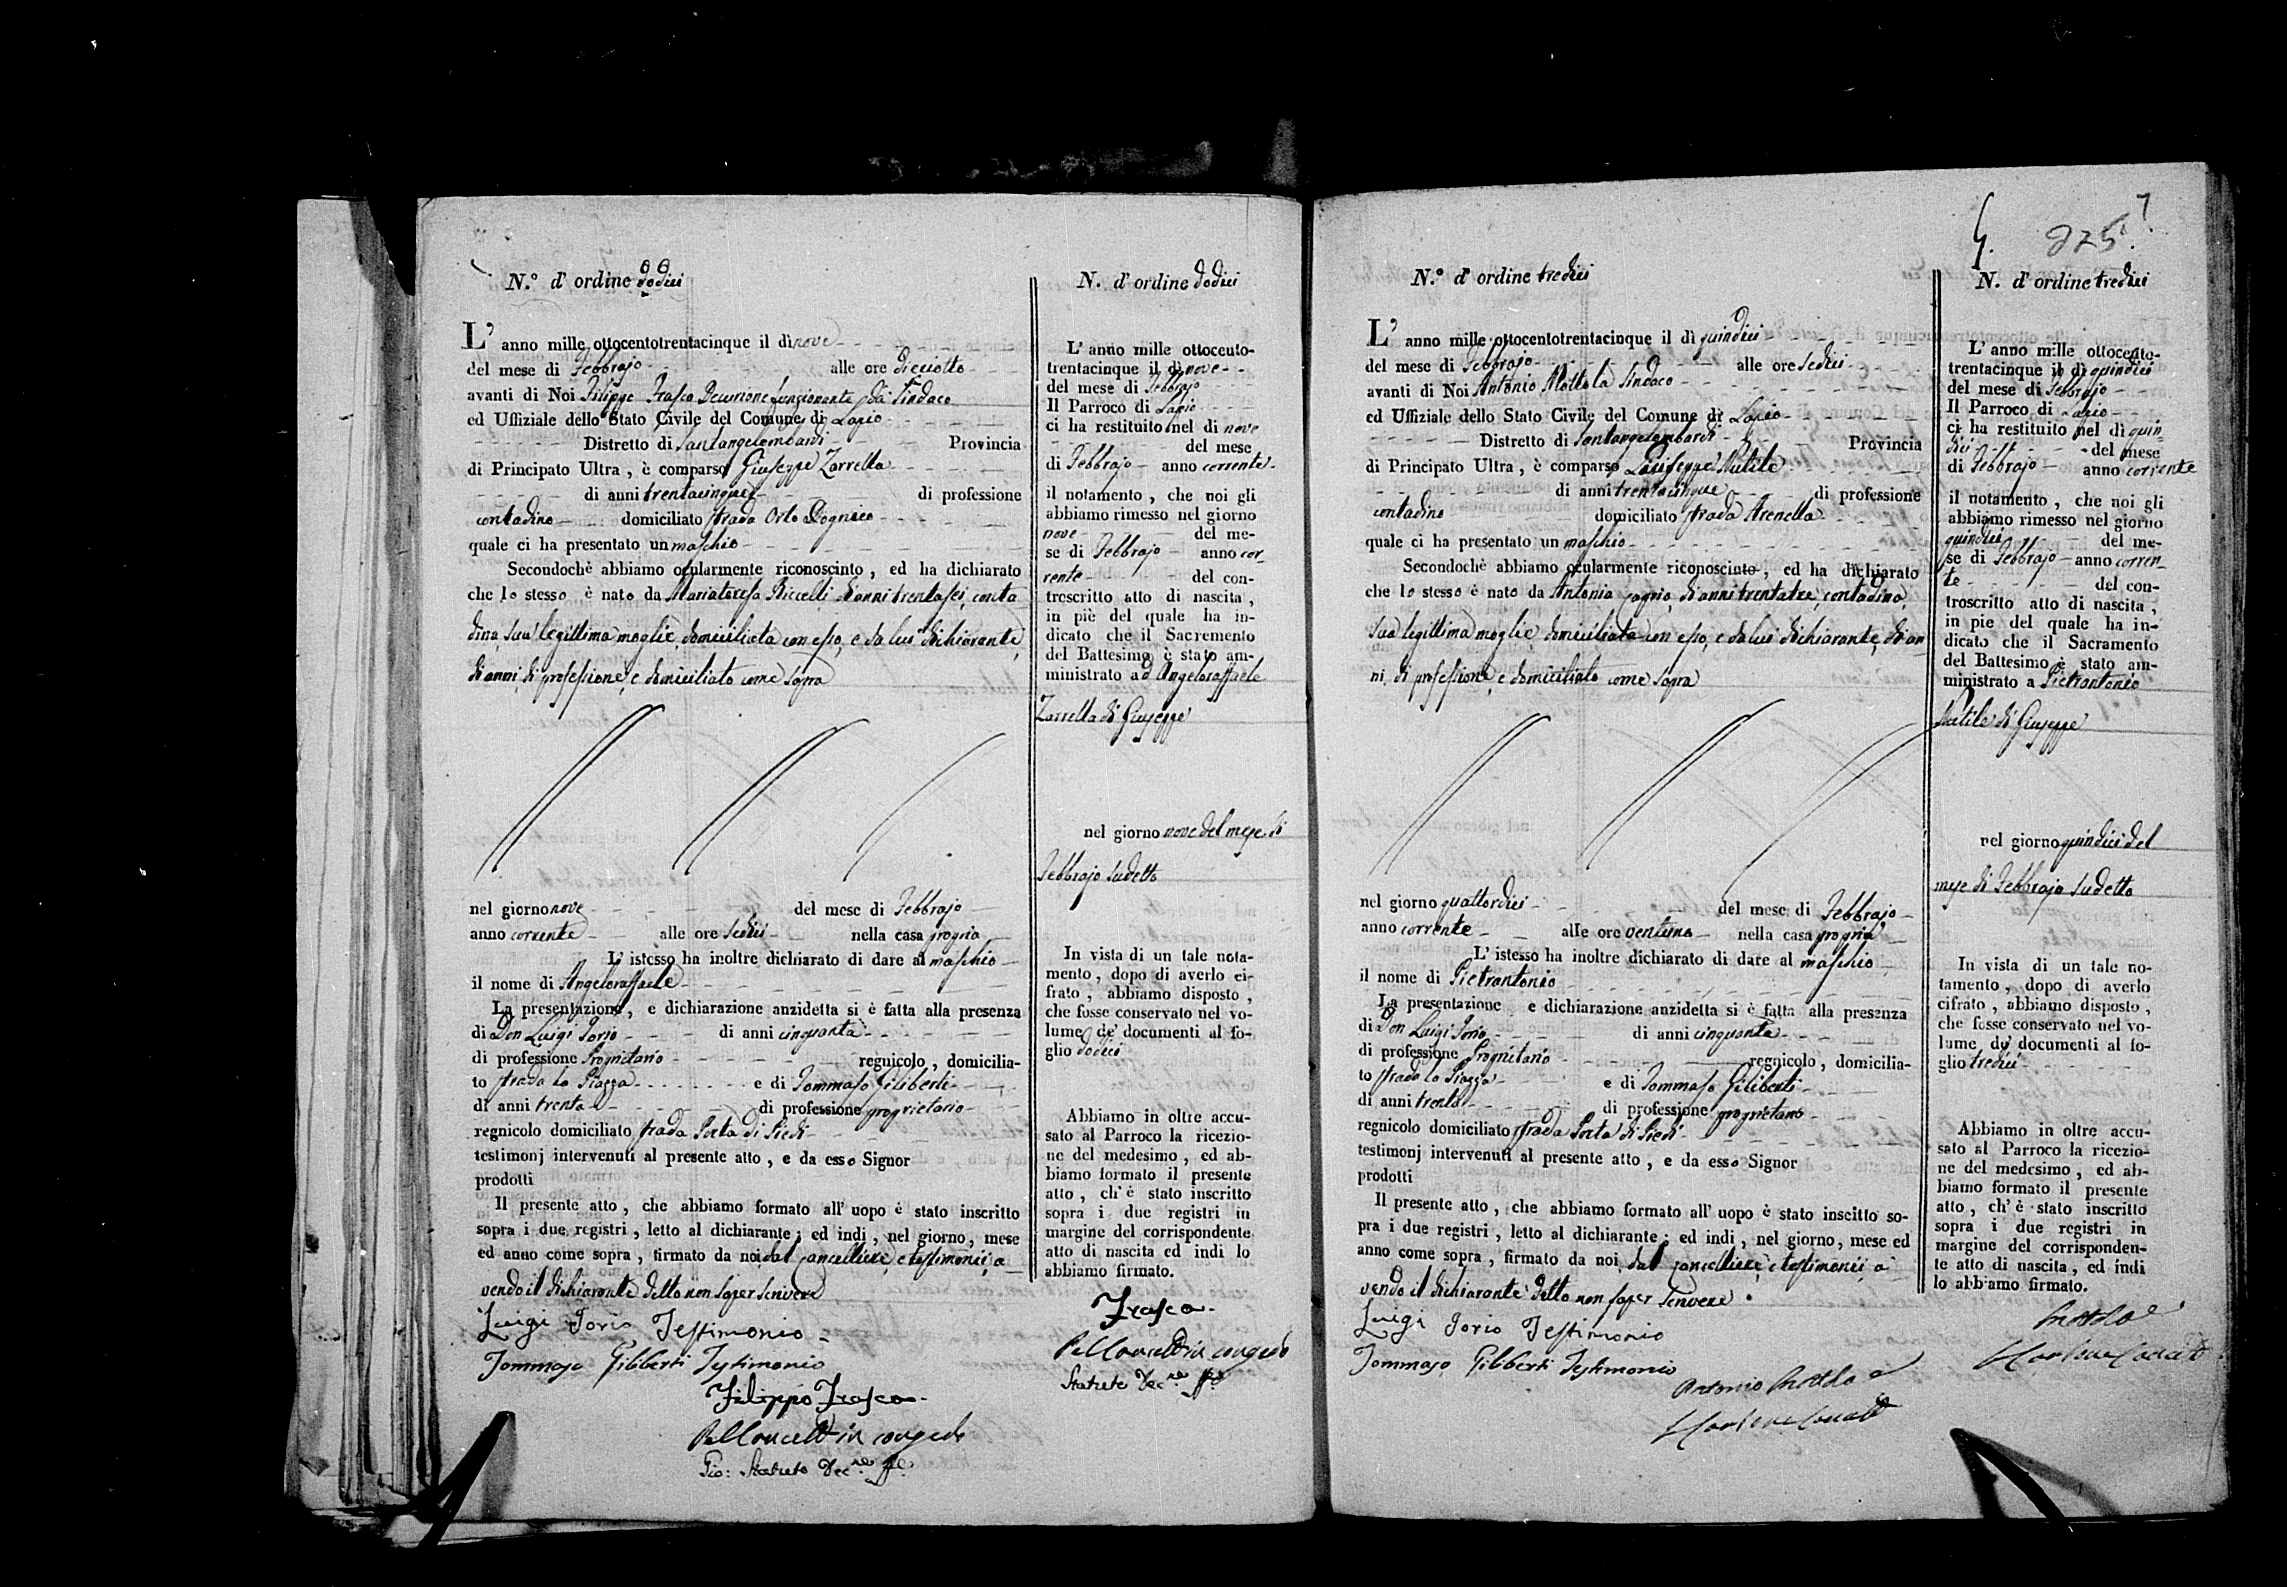 N.° d' ordine dodici
L' anno mille ottocentotrentacinque il dì nove
del mese di Febbrajo alle ore dicciotto
avanti di Noi Filippo Frasca Decurione funzionante da Sindaco
ed Uffiziale dello Stato Civile del Comune di Lapio
Distretto di Santangelombardi Provincia
di Principato Ultra, è comparso Giuseppe Zarrella
di anni trentacinque di professione
contadino domiciliato strada Orto
quale ci ha presentato un maschio
Secondochè abbiamo ocularmente riconosciuto, ed ha dichiarato
che lo stesso è nato da Mariateresa Riccelli di anni trentasei, conta
dina, sua legittima moglie, domiciliata con esso, e da lui dichiarante,
di anni, di professione, e domiciliato come sopra
nel giorno nove del mese di Febbrajo
anno corrente alle ore sedici nella casa propria
L' istesso ha inoltre dichiarato di dare al maschio
il nome di Angeloraffaele
La presentazione, e dichiarazione anzidetta si è fatta alla presenza
di Don Luigi Iorio di anni cinquanta
di professione Proprietario regnicolo, domicilia-
to strada la Piazza e di Tommaso Giliberti
di anni trenta di professione proprietario
regnicolo domiciliato strada Porta di Piedi
testimonj intervenuti al presente atto, e da esso Signor
prodotti
Il presente atto, che abbiamo formato all' uopo è stato inscritto
sopra i due registri, letto al dichiarante; ed indi, nel giorno, mese
ed anno come sopra, firmato da noi dal cancelliere, e testimonii, a
vendo il dichiarante detto non saper scrivere
Luigi Iorio Testimonio
Tommaso Giliberti Testimonio
Filippo Frasca
in congedo
Gio:
N. d' ordine dodici
L' anno mille ottocento-
trentacinque il dì nove
del mese di Febbrajo
Il Parroco di Lapio
ci ha restituito nel dì nove
del mese
di Febbrajo anno corrente
il notamento, che noi gli
abbiamo rimesso nel giorno
nove del me-
se di Febbrajo anno cor-
rente del con-
troscritto atto di nascita,
in piè del quale ha in-
dicato che il Sacremento
del Battesimo è stato am-
ministrato ad Angeloraffaele
Zarrella di Giuseppe
nel giorno nove del mese di
Febbrajo sudetto
In vista di un tale nota-
mento, dopo di averlo ci-
frato, abbiamo disposto,
che fosse conservato nel vo-
lume de' documenti al fo-
glio dodici
Abbiamo in oltre accu-
sato al Parroco la ricezio-
ne del medesimo, ed ab-
biamo formato il presente
atto, ch' è stato inscritto
sopra i due registri in
margine del corrispondente
atto di nascita ed indi lo
abbiamo firmato.
Frasca
in congedo
7
275
N.° d' ordine tredici
L' anno mille ottocentotrentacinque il dì quindici
del mese di Febbrajo alle ore sedici
avanti di Noi Antonio Mottola Sindaco
ed Uffiziale dello Stato Civile del Comune di Lapio
Distretto di Santangelombardi Provincia
di Principato Ultra, è comparso Giuseppe
di anni trentacinque di professione
contadino domiciliato strada Arenella
quale ci ha presentato un maschio
Secondochè abbiamo ocularmente riconosciuto, ed ha dichiarato
che lo stesso è nato da Antonia di anni trentatre, contadina,
sua legittima moglie, domiciliata con esso, e da lui dichiarante, di an
ni, di professione, e domiciliato come sopra
nel giorno quattordici del mese di Febbrajo
anno corrente alle ore ventuna nella casa propria
L' istesso ha inoltre dichiarato di dare al maschio
il nome di Pietrantonio
La presentazione e dichiarazione anzidetta si è fatta alla presenza
di Don Luigi Iorio di anni cinquanta
di professione Proprietario regnicolo, domicilia-
to strada la Piazza e di Tommaso Giliberti
di anni trenta di professione proprietario
regnicolo domiciliato strada Porta di Piedi
testimonj intervenuti al presente atto, e da esso Signor
prodotti
Il presente atto, che abbiamo formato all' uopo è stato inscitto so-
pra i due registri, letto al dichiarante; ed indi, nel giorno, mese ed
anno come sopra, firmato da noi, dal cancelliere, e testimonii, a
vendo il dichiarante detto non saper scrivere.
Luigi Iorio Testimonio
Tommaso Giliberti Testimonio
Antonio Mottola
N. d' ordine tredici
L' anno mille ottocento-
trentacinque il dì quindici
del mese di Febbrajo
Il Parroco di Lapio
ci ha restituito nel dì quin-
dici del mese
di Febbrajo anno corrente
il notamento, che noi gli
abbiamo rimesso nel giorno
quindici del me-
se di Febbrajo anno corren-
te del con-
troscritto atto di nascita,
in pie del quale ha in-
dicato che il Sacramento
del Battesimo è stato am-
ministrato a Pietrantonio
di Giuseppe
nel giorno quindici del
mese di Febbrajo sudetto
In vista di un tale no-
tamento, dopo di averlo
cifrato, abbiamo disposto,
che fosse conservato nel vo-
lume de' documenti al fo-
glio tredici
Abbiamo in oltre accu-
sato al Parroco la ricezio-
ne del medesimo, ed ab-
biamo formato il presente
atto, ch' è stato inscritto
sopra i due registri in
margine del corrisponden-
te atto di nascita, ed indi
lo abbiamo firmato.
Mottola